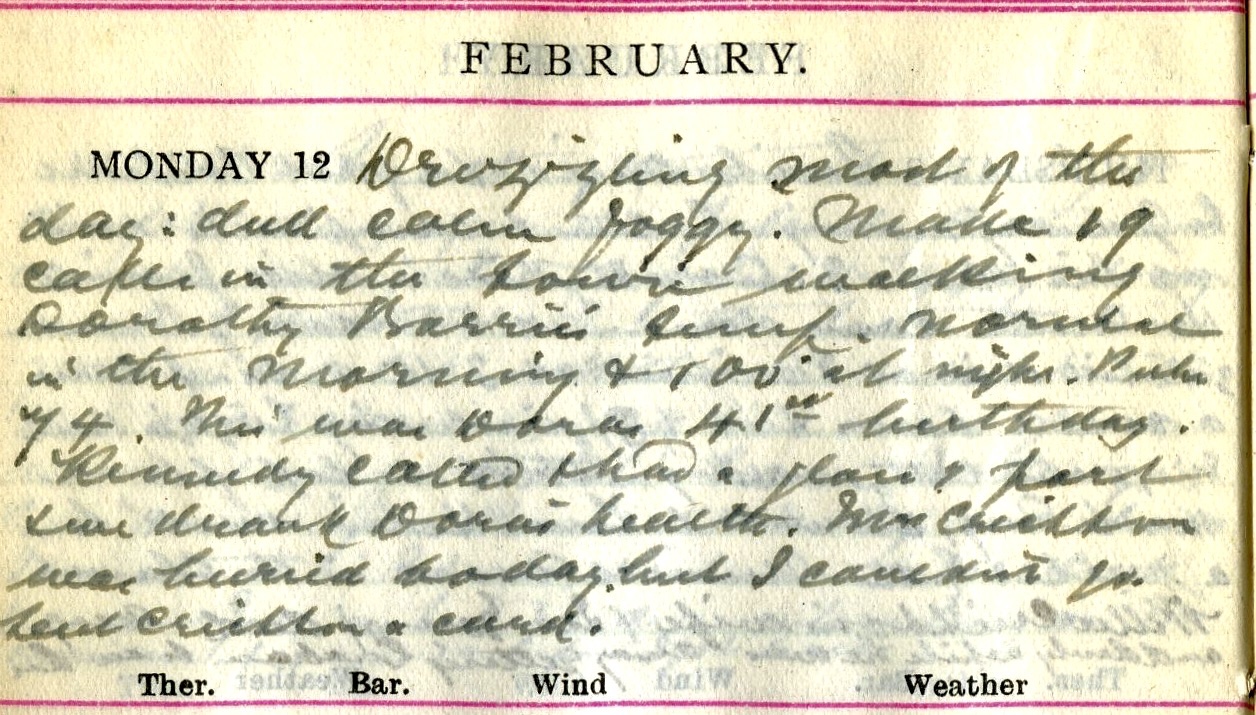 FEBRUARY.
MONDAY 12 Drizzling most of the
day: dull calm foggy. Made 19
calls in the town walking
Dorothy Barrie's temp. normal
in the morning & 100° at night. Pulse
74. This was Dora's 41st birthday.
Kennedy called & had a glass of port
& we drank Dora's health. Mrs Crichton
was buried today but I couldn't go
sent Crichton a card.
Ther. Bar. Wind Weather